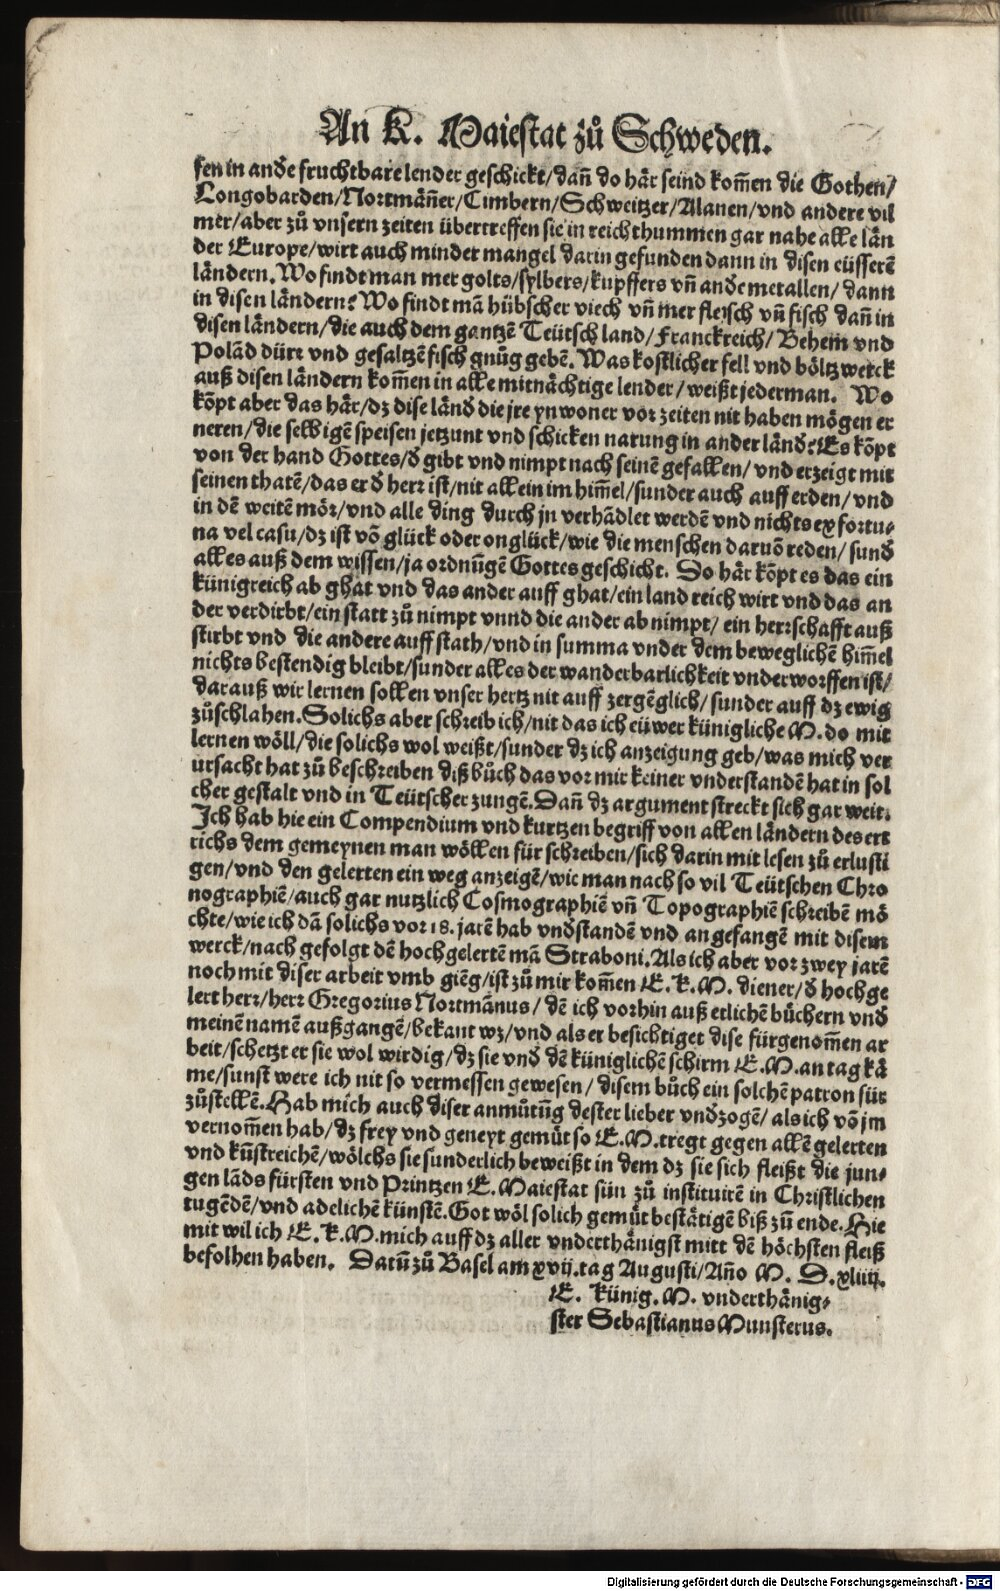 An K. Maiestat zů Schweden.
sen in anđe fruchtbare lender geschickt/dañ do här seind kom̄en die Gothen/
Longobarden/Nortmäñer/Cimbern/Schweitzer/Alanen/vnd andere vil
mer/aber zů vnsern zeiten übertreffen sie in reichthummen gar nahe alle län
der Europe/wirt auch minder mangel darin gefunden dann in disen eüsserē
ländern. Wo findt man mer golts/sylbers/kupffers vñ anđe metallen/ dann
in disen ländern? Wo findt mā hübscher viech vñ mer fleisch vñ fisch dañ in
disen ländern/die auch dem gantzē Teütsch land/Franckreich/ Behem vnd
Polād dürr vnd gesaltzē fisch gnůg gebē. Was kostlicher fell vnd böltzwerck
auß disen ländern kom̄en in alle mitnächtige lender/weißt jederman. Wo
kōpt aber das här/dz dise länđ die jre ynwoner vor zeiten nit haben mögen er
neren/die selbigē speisen jetzunt vnd schicken narung in ander länđ? Es kōpt
von der hand Gottes/đ gibt vnd nimpt nach seinē gefallen/ vnd erzeigt mit
seinen thatē/das er đ herr ist/nit allein im him̄el/sunder auch auff erden/ vnd
in dē weitē mör/vnd alle ding durch jn verhādlet werdē vnd nichts ex fortu⸗
na vel casu/dz ist vō glück oder onglück/wie die menschen daruō reden/ sunđ
alles auß dem wissen/ja ordnūgē Gottes geschicht. Do här kōpt es das ein
künigreich ab ghat vnd das ander auff ghat/ein land reich wirt vnd das an
der verdirbt/ein statt zů nimpt vnnd die ander ab nimpt/ ein herrschafft auß
stirbt vnd die andere auff stath/vnd in summa vnder dem beweglichē him̄el
nichts bestendig bleibt/sunder alles der wanderbarlichkeit vnderworffen ist/
darauß wir lernen sollen vnser hertz nit auff zergēglich/sunder auff dz ewig
zůschlahen. Solichs aber schreib ich/nit das ich eüwer künigliche M. do mit
lernen wöll/die solichs wol weißt/sunder dz ich anzeigung geb/was mich ver
ursacht hat zů beschreiben diß bůch das vor mir keiner vnderstandē hat in sol
cher gestalt vnd in Teütscher zungē. Dañ dz argument streckt sich gar weit.
Ich hab hie ein Compendium vnd kurtzen begriff von allen ländern des ert
richs dem gemeynen man wöllen für schreiben/sich darin mit lesen zů erlusti
gen/vnd den gelerten ein weg anzeigē/wie man nach so vil Teütschen Chro
nographiē/auch gar nutzlich Cosmographiē vñ Topographiē schreibē mö
chte/wie ich dā solichs vor 18. jarē hab vnđstandē vnd angefangē mit disem
werck/nach gefolgt dē hochgelertē mā Straboni. Als ich aber vor zwey jarē
noch mit diser arbeit vmb giēg/ist zů mir kom̄en E. K. M. diener/đ hochge
lert herr/herr Gregorius Nortmānus/ dē ich vorhin auß etlichē büchern vnđ
meinē namē außgangē/bekant wz/vnd als er besichtiget dise fürgenom̄en ar
beit/schetzt er sie wol wirdig/dz sie vnđ dē küniglichē schirm E.M. an tag kä
me/sunst were ich nit so vermessen gewesen/ disem bůch ein solchē patron für
zůstellē. Hab mich auch diser anmůtūg dester lieber vnđzogē/ als ich vō jm
vernom̄en hab/dz frey vnd geneyt gemüt so E.M. tregt gegen allē gelerten
vnd kūstreichē/wölchs sie sunderlich beweißt in dem dz sie sich fleißt die jun⸗
gen lāds fürsten vnd Printzen E. Maiestat sün zů instituirē in Christlichen
tugēdē/vnd adelichē künstē. Got wöl solich gemüt bestätigē biß zů ende. Hie
mit wil ich E. K. M. mich auff dz aller vnderthänigst mitt dē höchsten fleiß
befolhen haben. Datū zů Basel am xvij. tag Augusti/Año M. D. xliiij.
E. Künig. M. vnderthänig⸗
ster Sebastianus Munsterus.
Digitalisierung gefördert durch die Deutsche Forschungsgemeinschaft - DFG